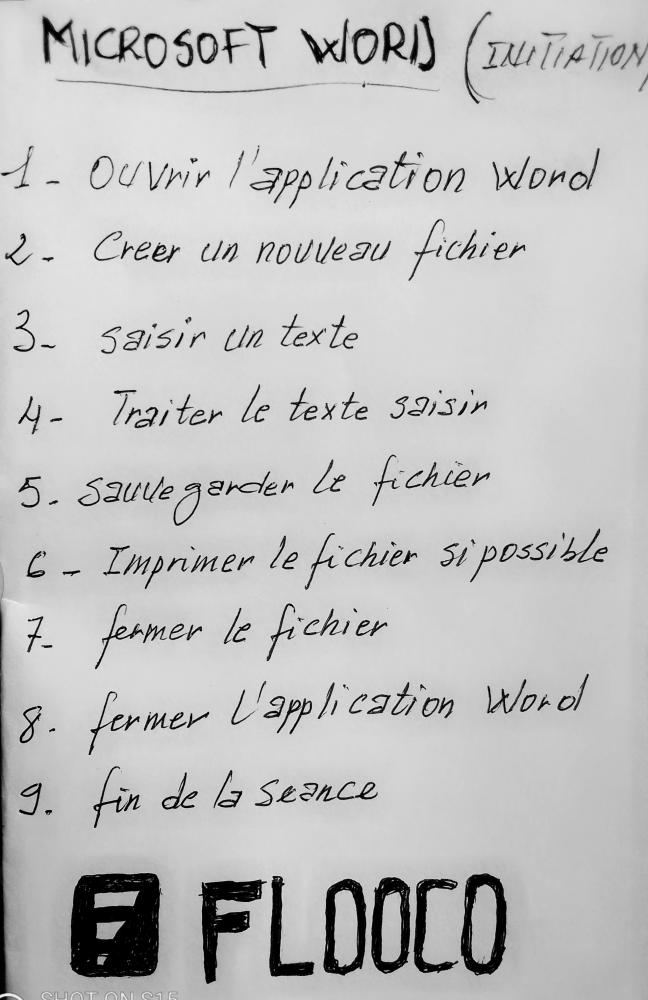 MICROSOFT WORD (INITIATION)
1- Ouvrir l'application Word
2- Creer un nouveau fichier
3- saisir un texte
4- Traiter le texte saisir
5. Sauvegarder le fichier
6- Imprimer le fichier si possible
7- fermer le fichier
8. fermer L'application Word
9. fin de la seance
F FLOOCO
SHOT ON S15